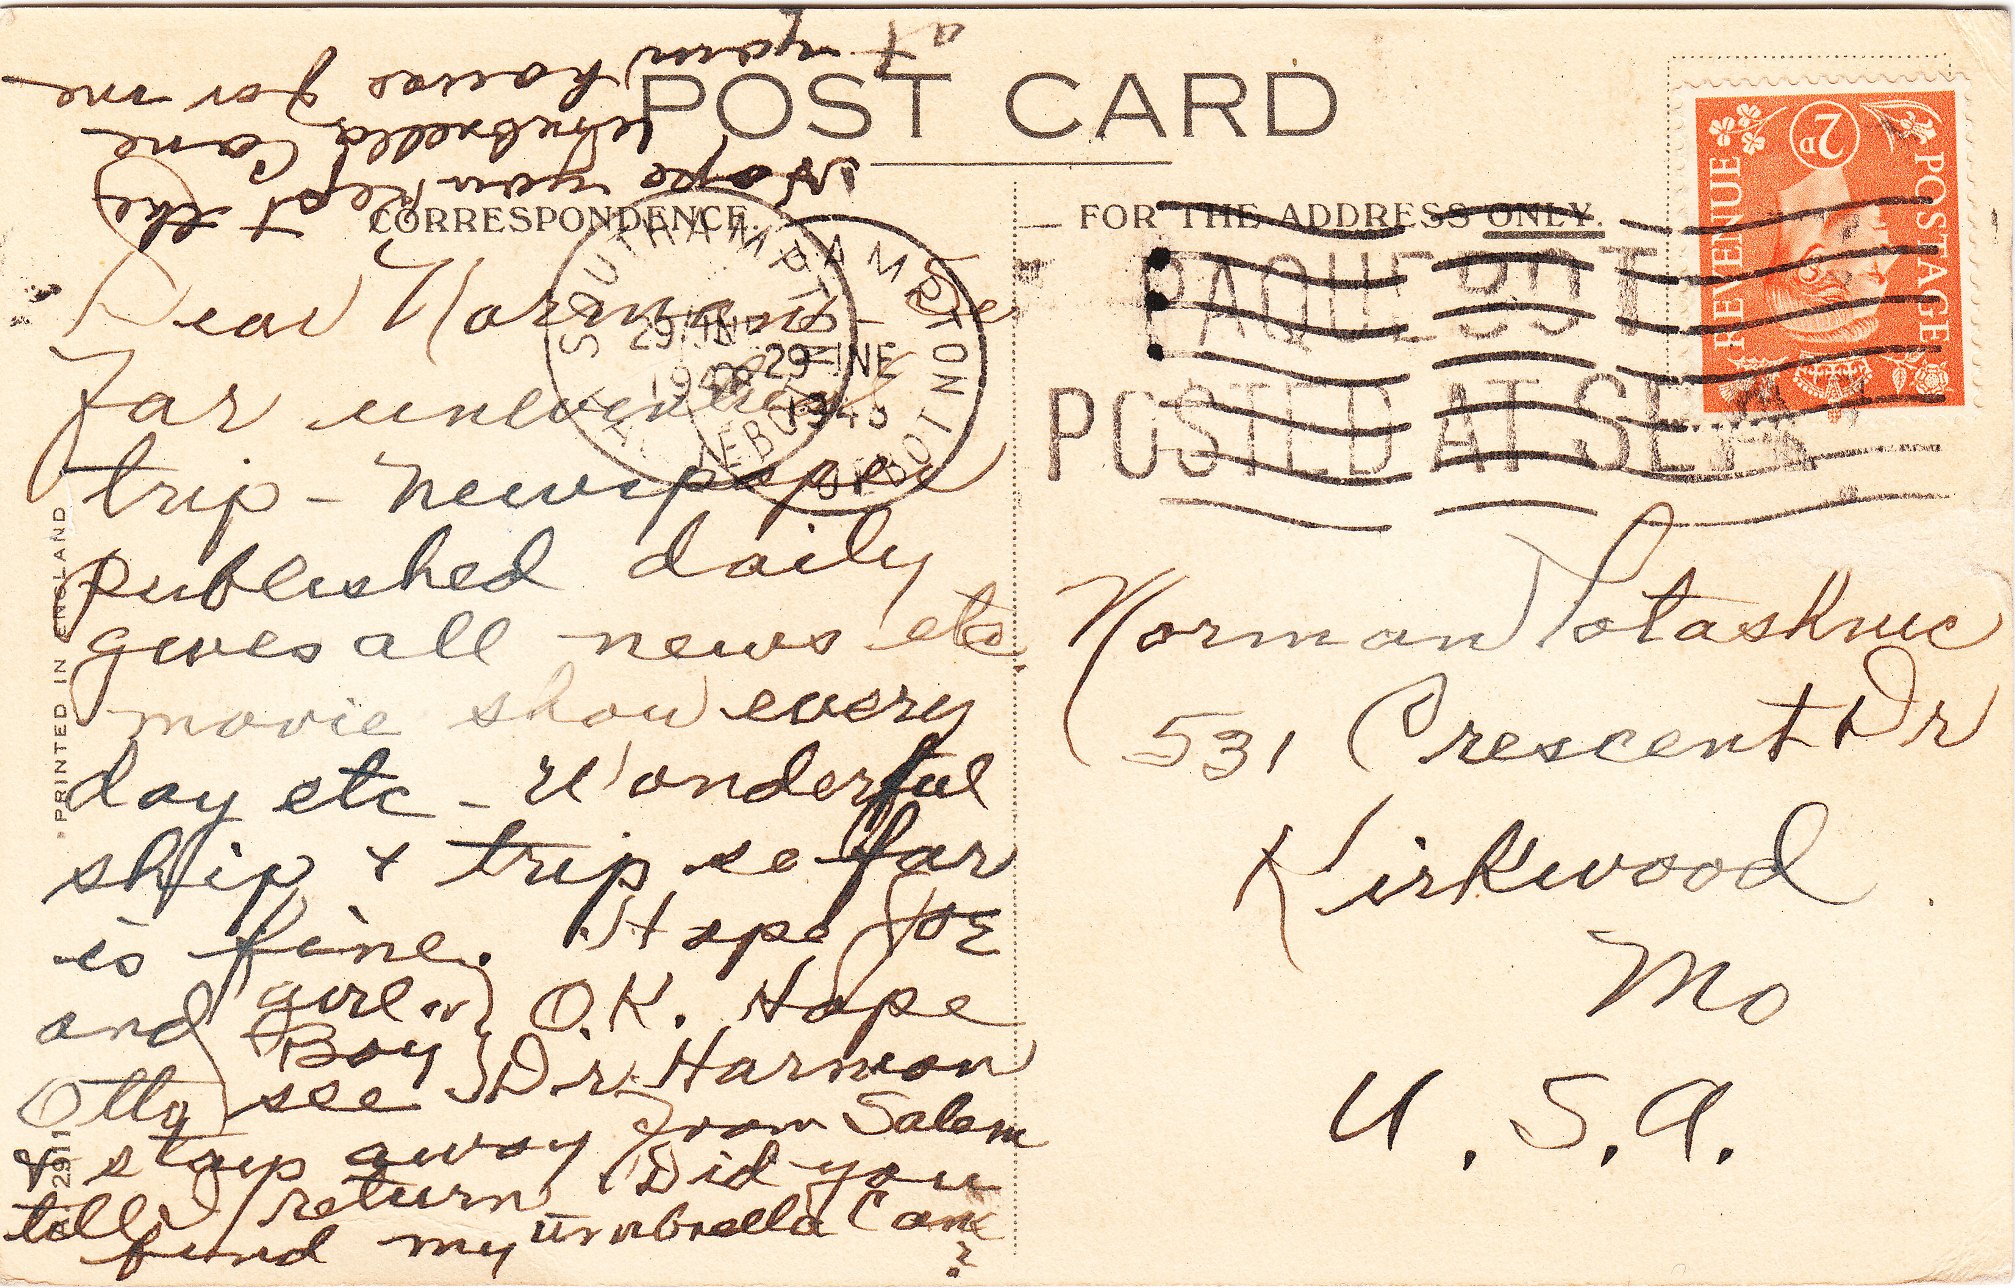 POST CARD
CORRESPONDENCE.
FOR THE ADDRESS ONLY.
Hope you kept the
Umbrella Cane
at your house for me
Dear Norman - So
Far uneventful
trip - newspaper
published daily
gives all news etc
movie show every
day etc - Wonderful
ship & trip so far
is fine. Hope Joe
and girl or Boy O.K. Hope
Otto see Dr. Harmon
& stays away from Salem
till I return Did you
find my Umbrella Cane
?
PRINTED IN ENGLAND
2911
SOUTHAMPTON
29 JNE
194
SOUTHAMPTON
29 JNE
194
PAQUEBOT
POSTED AT SEA
POSTAGE
REVENUE
2D
Norman
531 Crescent Dr
Kirkwood
Mo
U.S.A.